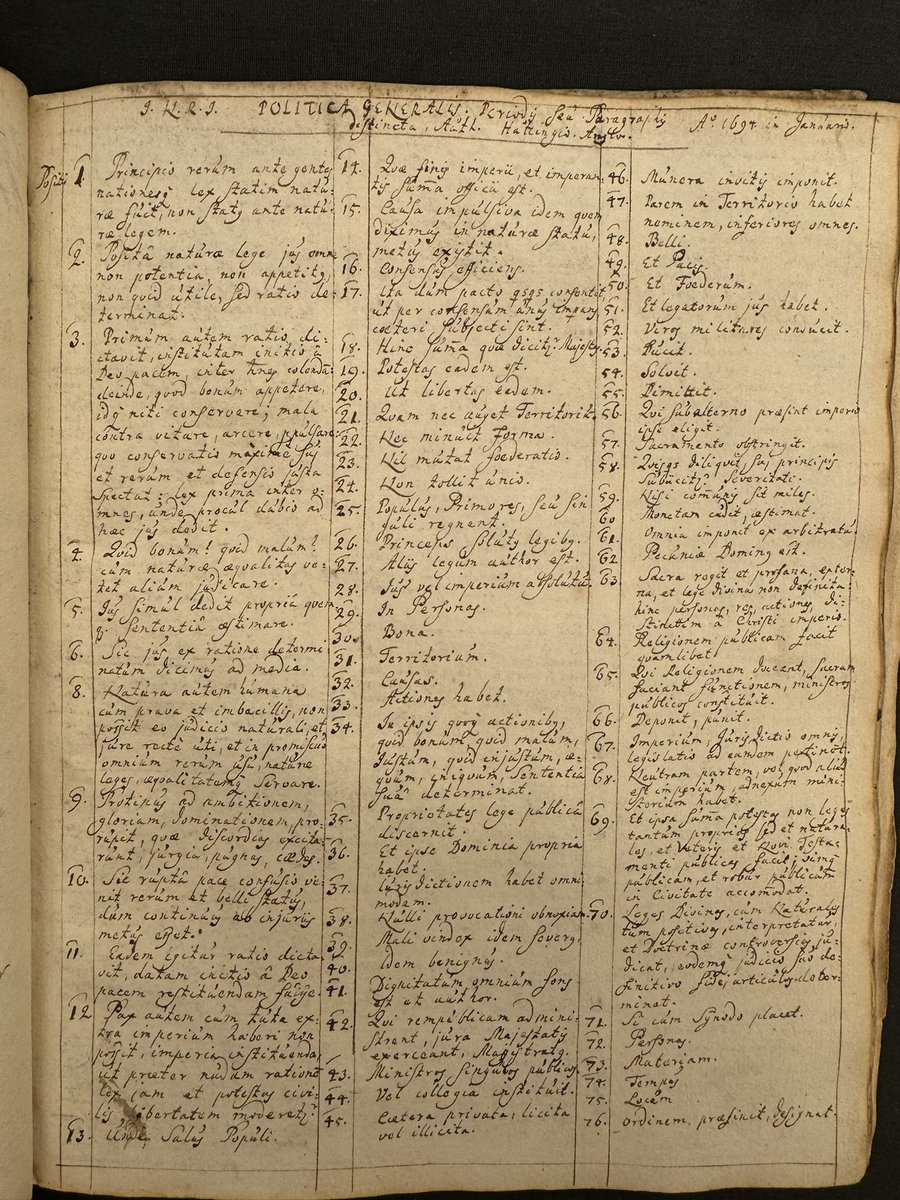 J. N. R. J. POLITICA GENERALIS. Periodis seu Paragraphis
distincta, Auth. Hattingio. Ao. 1694 in Januario.
Positis 1. Principio rerum ante gentes
nationesq lex statim natu-
ræ fuit, non status ante natu-
ræ legem.
2. Positâ naturæ lege jus omne
non potentia, non appetitus,
non quid utile, sed ratio de-
terminat.
3. Primum autem ratio di-
ctavit, institutam initio â
Deo pacem, inter hnes colendā:
deinde, quod bonum appetere,
idq niti conservare; mala
contra vitare, arcere, ppulsare:
quo conservatio maximè sui
et rerum et defensio justa
spectat: lex prima inter o-
mnes, unde procul dubio ad
hæc jus dedit.
4. Quid bonum! quid malum!
cum naturæ æqualitas ve-
tet alium judicare.
5. Jus simul dedit propria quem
sententiâ æstimare.
6. Sic jus ex ratione determi
natum dicimus ad media.
8. Natura autem humana
cum prava et imbecillis, non
possit eo judicio naturali, et
jure recte uti, et in promiscuo
omnium rerum usu, naturæ
leges, æqualitatemq servare.
9. Protinus ad ambitionem,
gloriam, dominationem, pro-
rupit, quæ discordias excita-
runt, jurgia, pugnas, cædes.
10. Sic ruptâ pace confusio ve-
nit rerum et belli status,
dum continuus ab injuriis
metus esset.
11. Eadem igitur ratio dicta-
vit, datam initio â Deo
pacem restituendam fuisse.
12. Pax autem cum tuta ex-
tra imperium haberi non
possit, imperia instituenda,
ut præter nudam rationem
lex jam et potestas civi-
lis libertatem moveret.
13. Unde Salus Populi.
14. Quæ finis imperii, et imperan-
tis suma officii est.
15. Causa impulsiva idem quem
diximus in naturæ statu,
metus existit.
16. Consensus efficiens.
17. ita dum pacto qsqs consentit
ut per consensum unius impantis
cœteri subjecti sint.
18. Hinc suma quæ dicitur Majestas
19. Potestas eadem est.
20. Ut libertas eadem.
21. Quam nec auget Territorium
22. Nec minuit forma.
23. Nil mutat foederatio.
24. Non tollit unio.
25. Populus, Primores, seu sin
guli regnent.
26. Princeps solutus legibus.
27. Aliis legum author est.
28. Jus vel imperium absolutum
29. In Personas.
30. Bona.
31. Territorium.
32. Causas.
33. Actiones habet.
34. In ipsis quoq actionibus,
quid bonum quid malum,
justum, quid injustum, æ-
quum, iniquum, sententia
suâ determinat.
35. Proprietates lege publicâ
discernit.
36. Et ipse Dominia propria
habet.
37. Jurisdictionem habet omni
modam.
38. Nulli provocationi obnoxiam.
39. Mali vindex idem severus
40. idem benignus.
41. Dignitatum omnium fons
est et author.
42. Qui rempublicam admini
strent, jura Majestatis
exerceant, Magistratus.
43. Ministros singulos publicos
44. Vel collegia instituit.
45. Cætera privata, licita
vel illicita.
46. Munera invitis imponit.
47. Parem in Territorio habet
neminem, inferiores omnes.
48. Belli.
49. Et Pacis.
50. Et Foederum.
51. Et legatorum jus habet.
52. Viros militares conducit.
53. Ducit.
54. Solvit.
55. Dimittit.
56. Qui subalterno præsint imperio
ipse eligit.
57. Sacramento obstringit.
58. Quisqs diliquit, sui principis
subjacitur severitati.
59. Nisi comunis sit miles.
60 Monetam cudit, æstimat.
61. Omnia imponit ex arbitratu.
62 Pecuniæ Dominus est.
63 Sacra regit et profana, exter-
na, et lege divina non definita:
hinc personas, res, actiones, di-
stinctim â Christi imperio.
64. Religionem publicam facit
quamlibet.
65. Qui Religionem doceant, sacram
faciant functionem, ministros
publicos constituit.
66. Deponit, punit.
67. Imperium, Jurisdictio omnis,
legislatio ad eundem pertinet.
68. Neutram partem, vel quod aliud
est imperium, adnexum mini-
sterium habet.
69. Et ipsa suma potestas non leges
tantum proprias sed et natura-
les, et Veteris et Novi Testa-
menti publicas facit; vimq
publicam, et robur publicum
in Civitate accomodat.
70. Leges Divinas, cum Naturales
tum positivas, interpretatur,
et Doctrinæ controversiis ju-
dicat, eodemq judicio suo de-
finitivo fidei articulos deter-
minat.
71. Si cum Synodo placet.
72. Personas.
73. Materiam.
74. Tempus
75. Locum
76. ordinem, præfinit, designat.